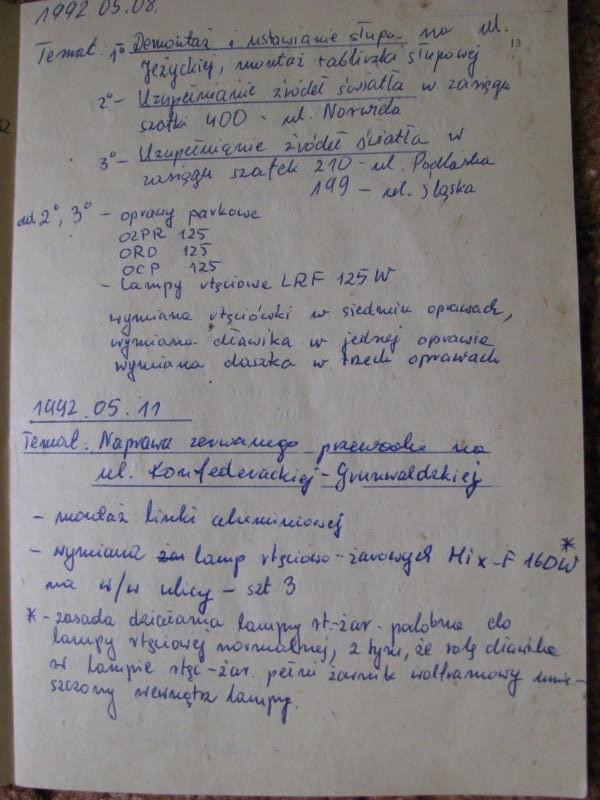 1992.05.08.
13
Temat: 1° Demontaż i ustawianie słupa na ul.
Jeżyckiej, montaż tabliczki słupowej
2° - Uzupełnianie źródeł światła w zasięgu
szafki 400 - ul. Norwida
3° - Uzupełnianie źródeł światła w
zasięgu szafek 210 - ul. Podlaska
199 - ul. Śląska
ad 2°, 3° - oprawy parkowe
OZPR 125
ORD 125
OCP 125
- lampy rtęciowe LRF 125W
wymiana rtęciówki w siedmiu oprawach,
wymiana dławika w jednej oprawie
wymiana daszka w trzech oprawach
1992.05.11
Temat: Naprawa zerwanego przewodu na
ul. Konfederackiej - Grunwaldzkiej
- montaż linki aluminiowej
- wymiana lamp rtęciowo-żarowych Mix-F 160W *
na w/w ulicy - szt 3
* - zasada działania lampy rt.-żar. podobna do
lampy rtęciowej normalnej, z tym, że rolę dławika
w lampie rtęc-żar. pełni żarnik wolframowy umie-
szczony wewnątrz lampy.